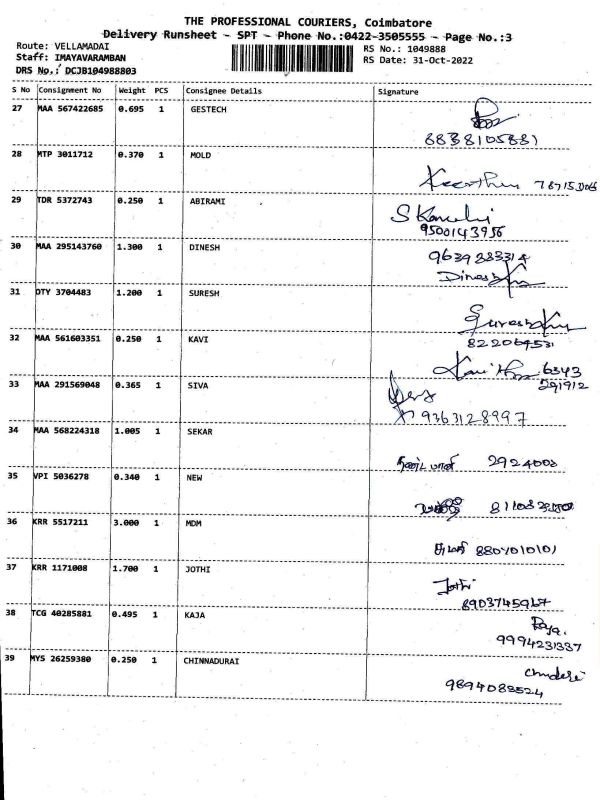 THE PROFESSIONAL COURIERS, Coimbatore
Delivery Runsheet - SPT - Phone No.:0422-3505555 - Page No.:3
Route: VELLAMADAI
RS No.: 1049888
Staff: IMAYAVARAMBAN
RS Date: 31-Oct-2022
DRS No.: DCJB104988803
S No Consignment No Weight PCS Consignee Details Signature
27 MAA 567422685 0.695 1 GESTECH
8838105881
28 MTP 3011712 0.370 1 MOLD
Keerthu
29 TDR 5372743 0.250 1 ABIRAMI
9500143956
30 MAA 295143760 1.300 1 DINESH
9639283314
Dinesh
31 DTY 3704483 1.200 1 SURESH
Suresh
32 MAA 561603351 0.250 1 KAVI
6343
291912
33 MAA 291569048 0.365 1 SIVA
9363128997
34 MAA 568224318 1.005 1 SEKAR
2924003
35 VPI 5036278 0.340 1 NEW
36 KRR 5517211 3.000 1 MDM
குமார் 8807010101
37 KRR 1171008 1.700 1 JOTHI
Jothi
8903745967
38 TCG 40285881 0.495 1 KAJA
9994231337
39 MYS 26259380 0.250 1 CHINNADURAI
9894083524